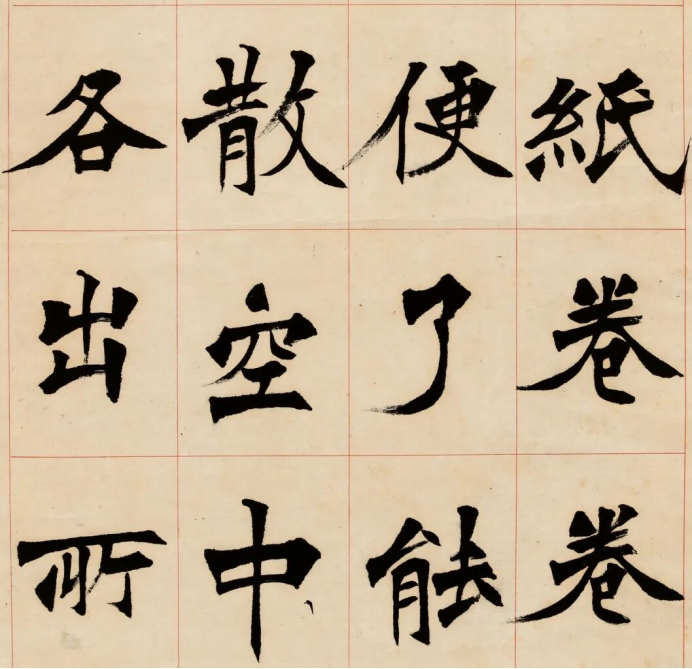 紙卷卷
便了能
散空中
各出所